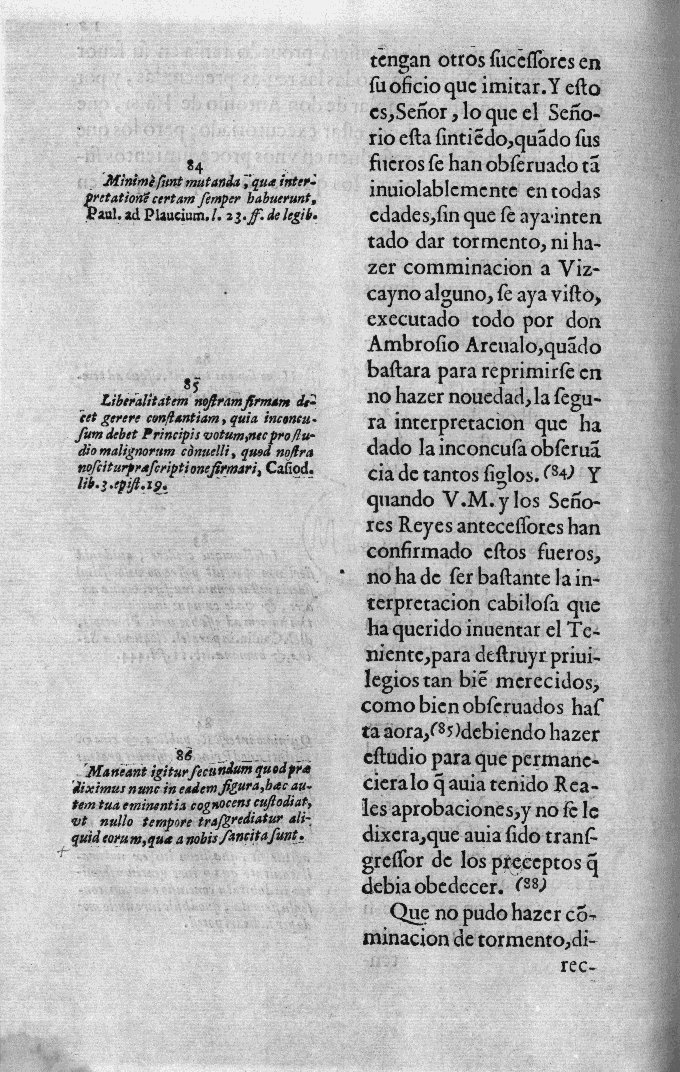 84
Minimè sunt mutanda, quæ inter-
pretationē certam semper habuerunt,
Paul. ad Plaucium. l. 23. ff. de legib.
85
Liberalitatem nostram firmam de-
cet gerere constantiam, quia inconcu-
sum debet Principis votum, nec pro stu-
dio malignorum cōnuelli, quod nostra
noscitur præscriptione firmari, Casiod.
lib. 3. epist. 19.
86
Maneant igitur secundum quod præ
diximus nunc in eadem figura, hæc au-
tem tua eminentia cognocens custodiat,
vt nullo tempore trāsgrediatur ali-
quid eorum, quæ a nobis sancita sunt.
tēngan otros sucessores en
su oficio que imitar. Y esto
es, Señor, lo que el Seño-
rio esta sintiēdo, quādo sus
fueros se han obseruado tā
inuiolablemente en todas
edades, sin que se aya inten
tado dar tormento, ni ha-
zer comminacion a Viz-
cayno alguno, se aya visto,
executado todo por don
Ambrosio Areualo, quādo
bastara para reprimirse en
no hazer nouedad, la segu-
ra interpretacion que ha
dado la inconcusa obseruā
cia de tantos siglos. (84) Y
quando V.M. y los Seño-
res Reyes antecessores han
confirmado estos fueros,
no ha de ser bastante la in-
terpretacion cabilosa que
ha querido inuentar el Te-
niente, para destruyr priui-
legios tan biē merecidos,
como bien obseruados has
ta aora, (85) debiendo hazer
estudio para que permane-
ciera lo q̄ auia tenido Rea-
les aprobaciones, y no se le
dixera, que auia sido trans-
gressor de los preceptos q̄
debia obedecer. (88)
Que no pudo hazer cō-
minacion de tormento, di-
rec-